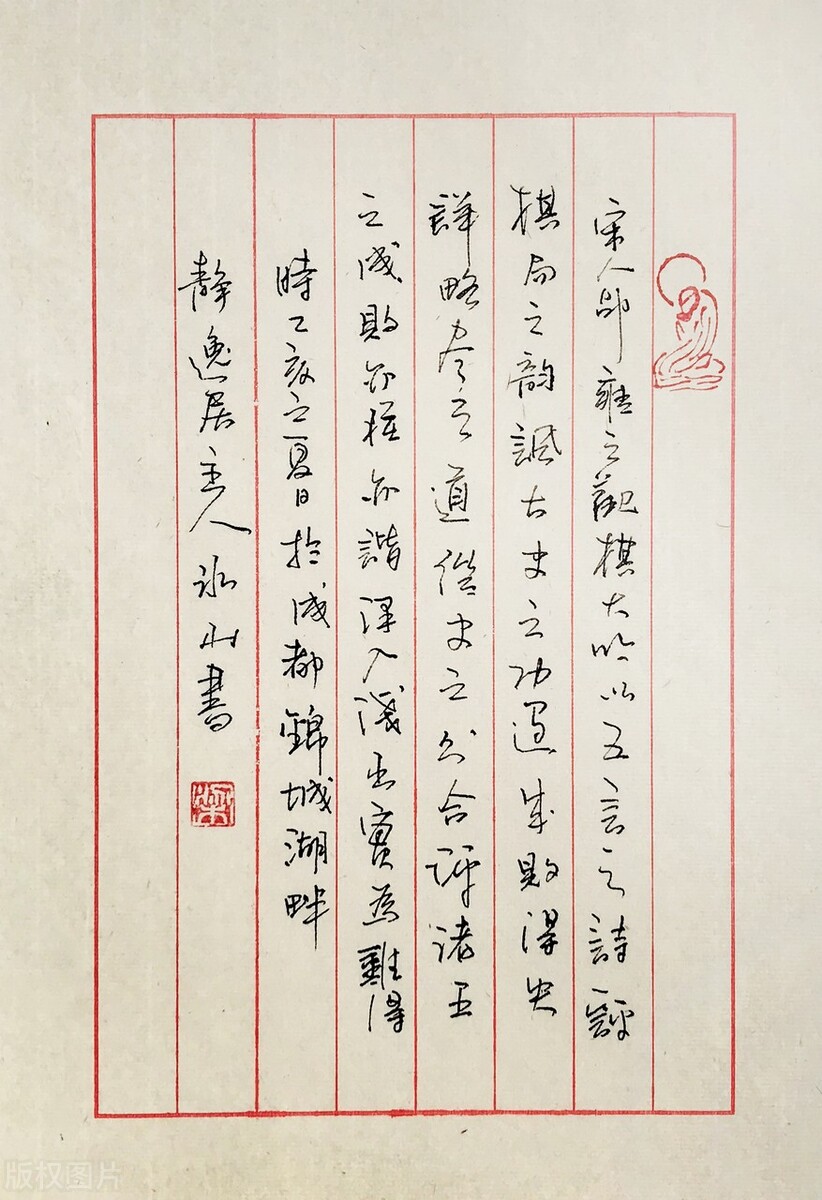 宋人邵雍之觀棋大吟以五言之詩評
棋局之韵譏古史之功過成敗得失
詳略李言道從史之分合評諸王
之成敗亦樸亦諧深入淺出實為難得
時乙亥之夏日於成都錦城湖畔
靜逸居主人冰山書
版权图片